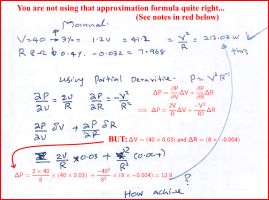 You are not using that approximation formula quite right...
(See notes in red below)
Manual
V=40 → 3% = 1.2V = 41.2 = V²/R = 213.03W
R 8Ω → 0.4% -0.032 = 7.968
Using Partial Derivative. P = V²R⁻¹
∂P/∂V = 2V/R ∂P/∂R = -V²/R²
ΔP = ∂P/∂V ΔV + ∂P/∂R ΔR
⇒ ΔP = 2V/R ΔV + -V²/R² ΔR
∂P/∂V δV + ∂P/∂R δR
BUT: ΔV = (40 × 0.03) and ΔR = (8 × -0.004)
2V/R × 0.03 + V²/R² (0.004)
ΔP = 2 × 40/8 × (40 × 0.03) + -40²/8² × (8 × -0.004) = 12.8
How achieve ?